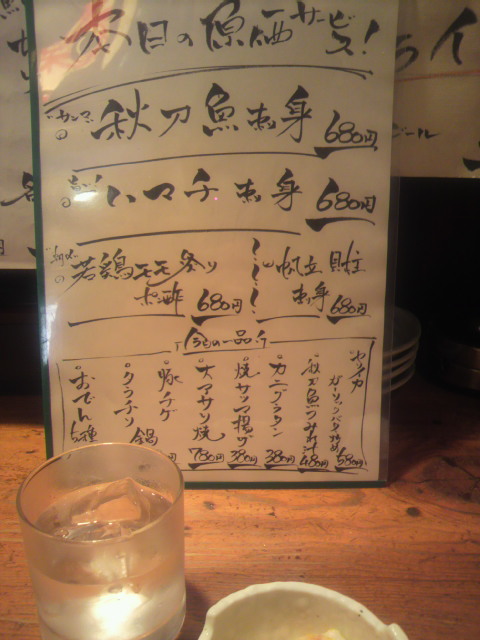 本日の原価サービス!
"サンマ"の 秋刀魚刺身 680円
ハマチ刺身 680円
若鶏モモ炙り
ポン酢 680円
帆立貝柱
刺身 680円
今日の一品
ヤリイカ
ガーリックバター炒め 580円
秋刀魚つみれ汁 480円
カニグラタン 380円
焼サツマ揚げ 380円
大アサリ焼 780円
豚チゲ鍋
おでん5種